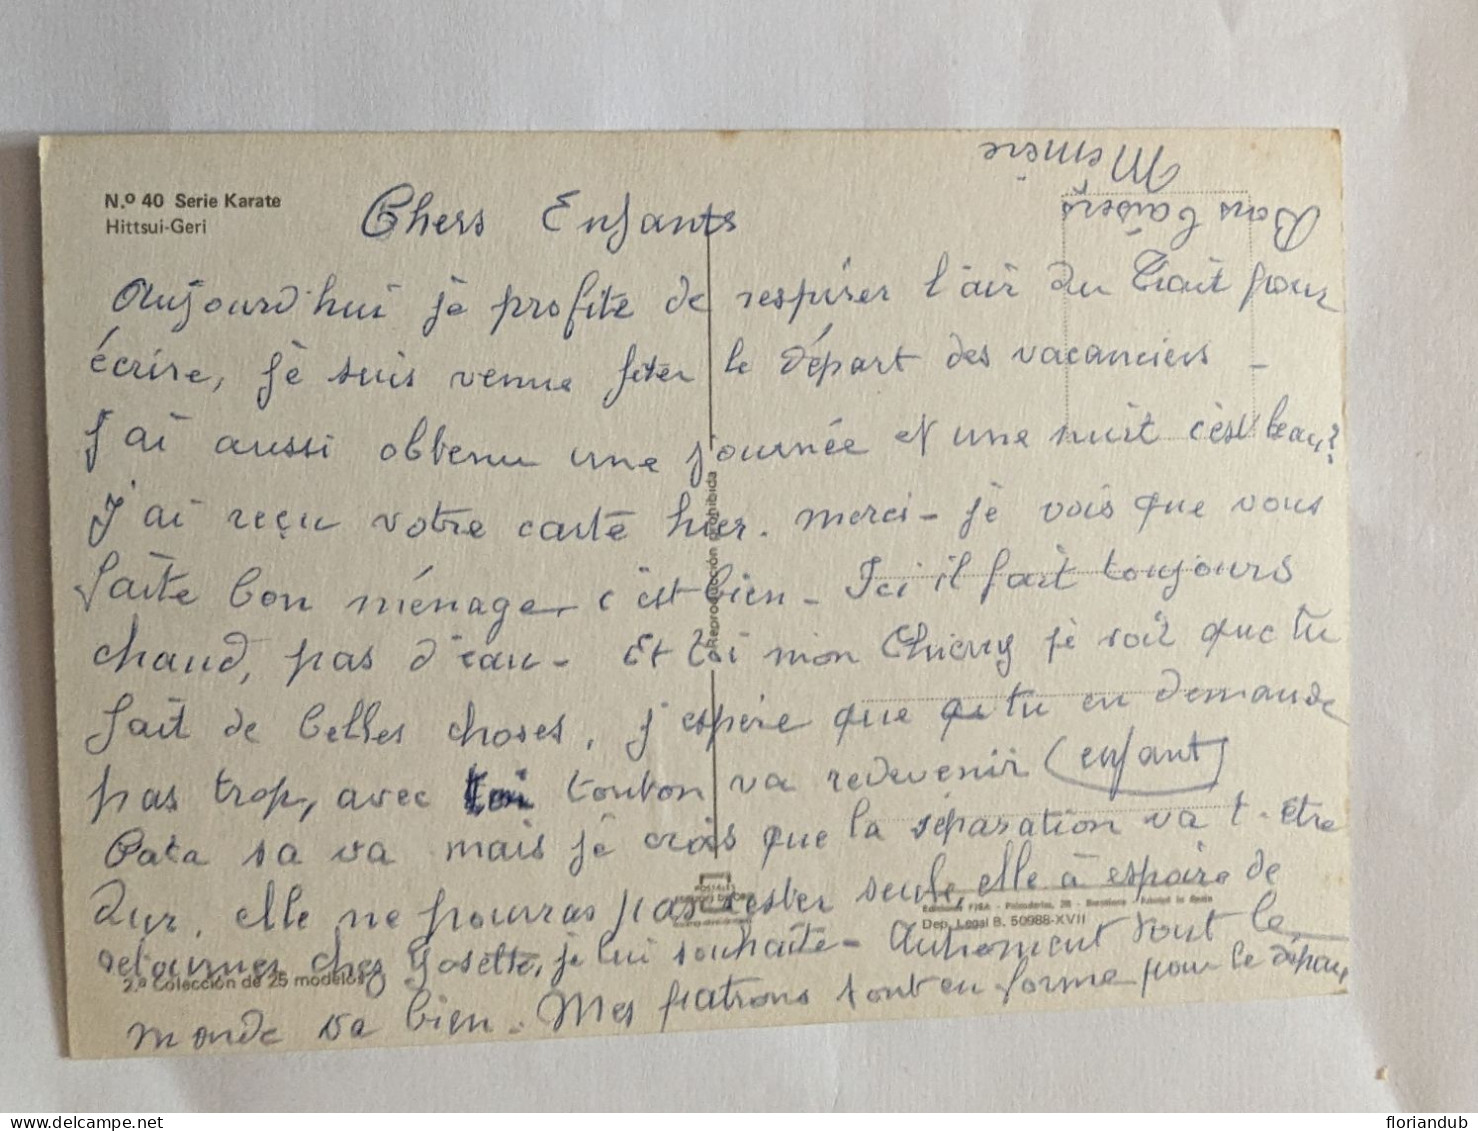 N.º 40 Serie Karate
Hittsui-Geri
Chers Enfants
Aujourd'hui je profite de respirer l'air du Trait pour
écrire, je suis venue feter le départ des vacanciers -
J'ai aussi obtenu une journée et une nuit c'est beau?
J'ai reçu votre carte hier. merci - je vois que vous
faite bon ménage, c'est bien - Ici il fait toujours
chaud, pas d'eau - Et toi mon Thierry je sait que tu
fait de belles choses, j'espère que tu en demande
pas trop, avec toi tonton va redevenir (enfant)
Pata sa va mais je crois que la séparation va t-etre
dur, elle ne pourras pas rester seule, elle à espoire de
retourner chez Josette, je lui souhaite - Autrement tout le
monde va bien - Mes patrons sont en forme pour le départ
Bons baisers
Mémère
Reproducción prohibida
Dep. Legal B. 50988-XVII
2.ª Colección de 25 modelos
floriandub